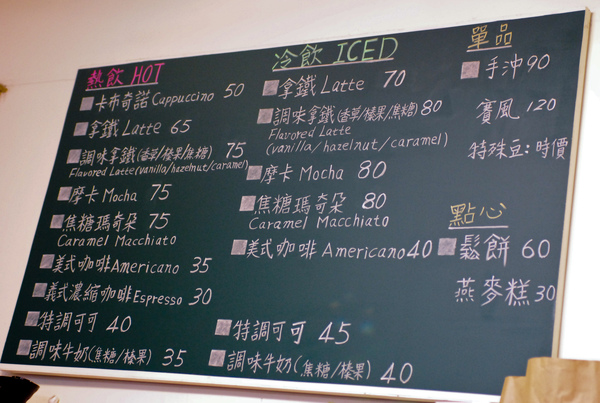 熱飲 HOT
卡布奇諾 Cappuccino 50
拿鐵 Latte 65
調味拿鐵(香草/榛果/焦糖) 75
Flavored Latte (vanilla/hazelnut/caramel)
摩卡 Mocha 75
焦糖瑪奇朵 75
Caramel Macchiato
美式咖啡 Americano 35
義式濃縮咖啡 Espresso 30
特調可可 40
調味牛奶(焦糖/榛果) 35
冷飲 ICED
拿鐵 Latte 70
調味拿鐵(香草/榛果/焦糖) 80
Flavored Latte
(vanilla/hazelnut/caramel)
摩卡 Mocha 80
焦糖瑪奇朵 80
Caramel Macchiato
美式咖啡 Americano 40
特調可可 45
調味牛奶(焦糖/榛果) 40
單品
手沖 90
賽風 120
特殊豆:時價
點心
鬆餅 60
燕麥糕 30